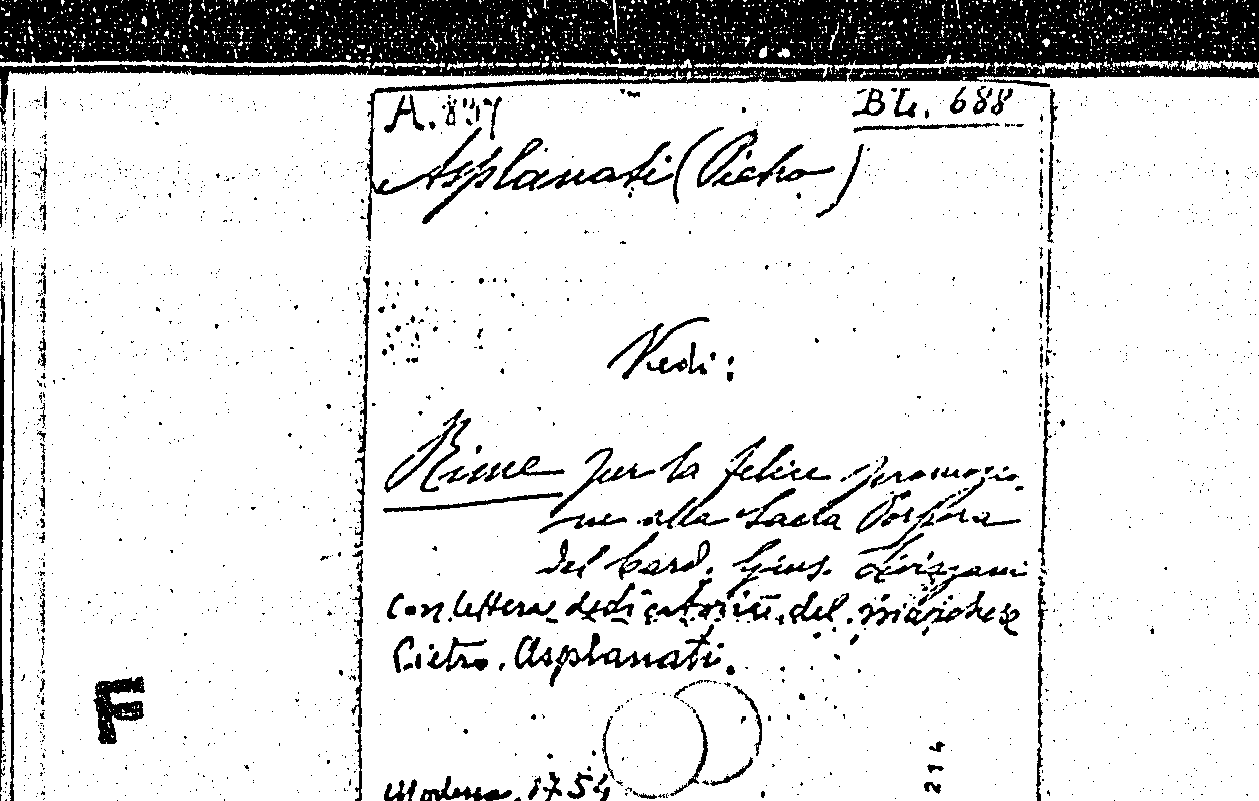 A. 897 BU. 688
Asplanati (Pietro)
Vedi:
Rime per la felice promozio-
ne alla Sacra Porpora
del Card. Gius. Livizzani
con lettera dedicatoria del marchese
Pietro Asplanati.
F
214
Modena, 1754